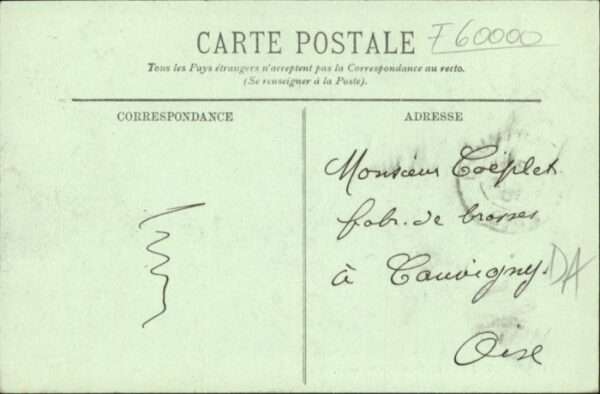 CARTE POSTALE F60000
Tous les Pays étrangers n'acceptent pas la Correspondance au recto.
(Se renseigner à la Poste).
CORRESPONDANCE
ADRESSE
Monsieur
fabr. de brosses
à Cauvigny DA
Oise